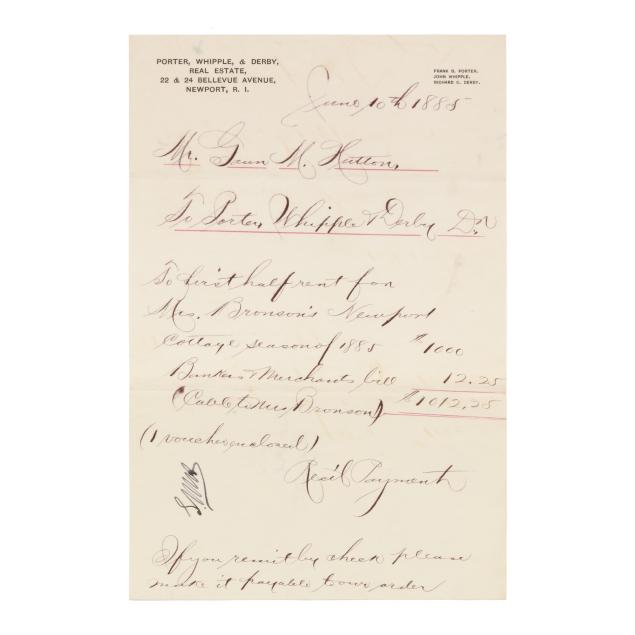 PORTER, WHIPPLE, & DERBY,
REAL ESTATE,
22 & 24 BELLEVUE AVENUE,
NEWPORT, R. I.
FRANK B. PORTER,
JOHN WHIPPLE,
RICHARD C. DERBY.
June 10th 1885
Mr. Gaun M. Hutton,
To Porter, Whipple & Derby Dr
To first half rent for
Mrs. Bronson's Newport
Cottage season of 1885 $1000
Bankers & Merchants bill 12.25
(Cable to Mrs Bronson) $1012.25
(1 voucher enclosed)
Rec'd Payment
If you remit by check please
make it payable to our order